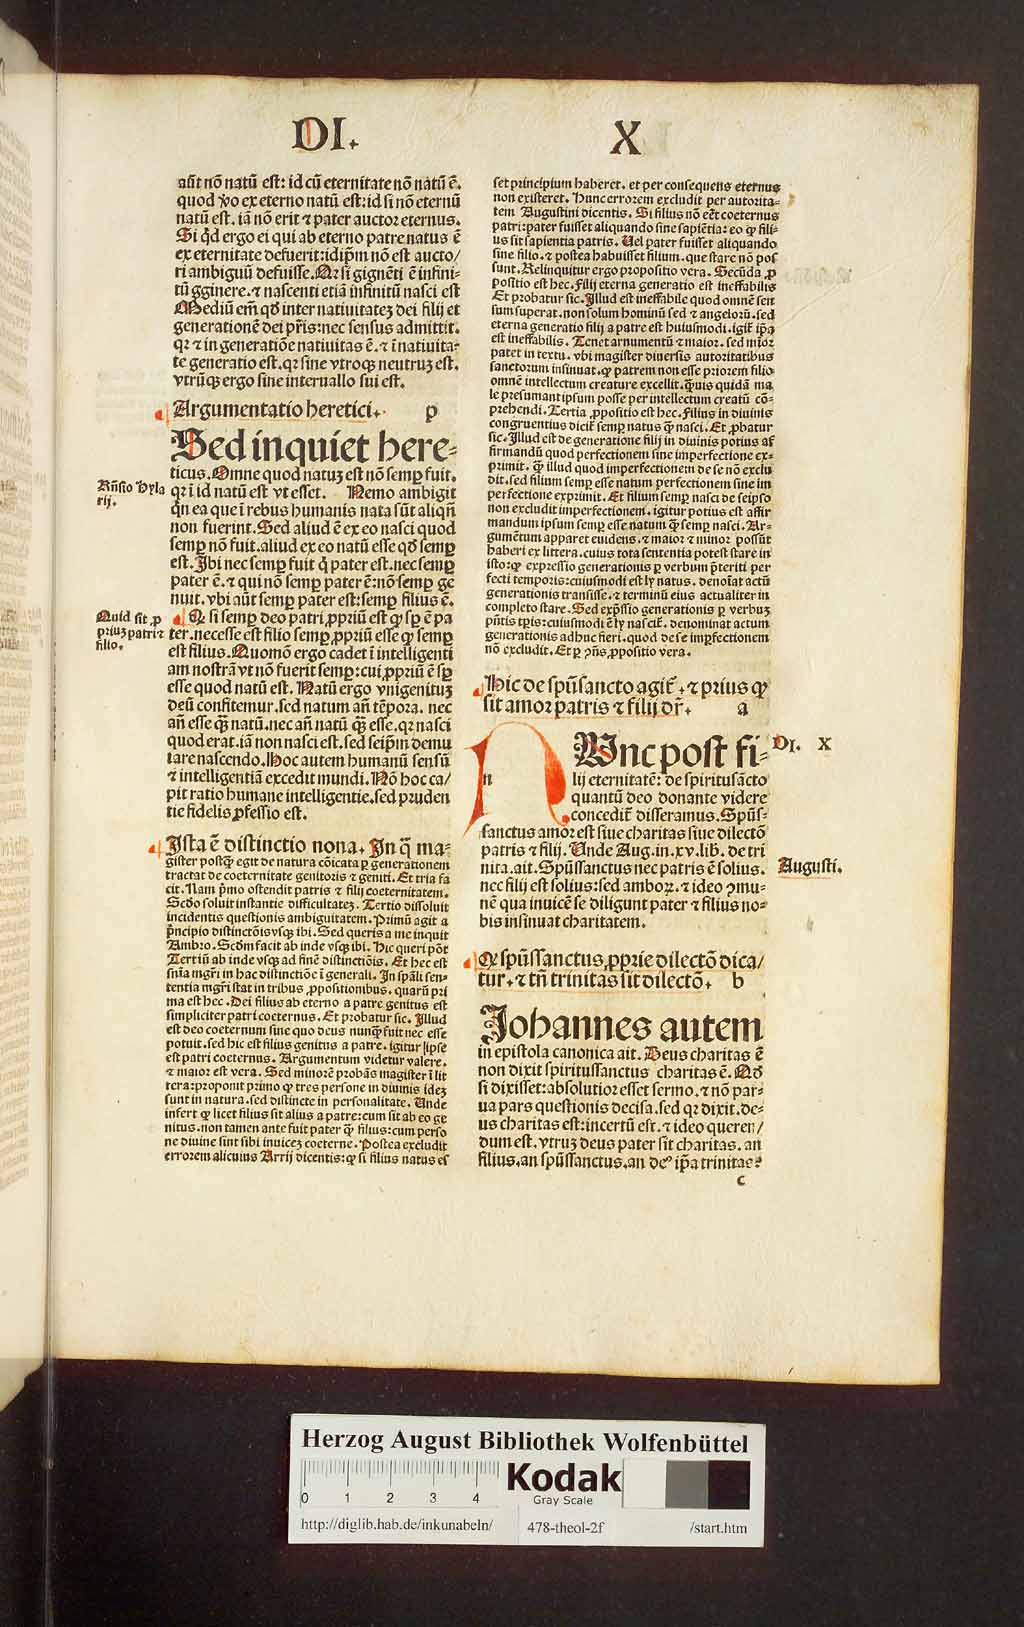 DI. X
aūt nō natū est: id cū eternitate nō natū ē.
quod ꝟo ex eterno natū est: id si nō eternū
natū est. iā nō erit ⁊ pater auctor eternus.
Si qd̓ ergo ei qui ab eterno patre natus ē
ex eternitate defuerit: id ip̄m nō est aucto/
ri ambiguū defuisse. Qꝛ si gignēti ē infini-
tū gginere. ⁊ nascenti etiā infinitū nasci est
Mediū em̄ qd̓ inter natiuitateꝫ dei filij et
generationē dei pr̄is: nec sensus admittit.
qꝛ ⁊ in generatiōe natiuitas ē. ⁊ ī natiuita-
te generatio est. qꝛ sine vtroqꝫ neutruꝫ est.
vtrūqꝫ ergo sine interuallo sui est.
Argumentatio heretici. p
Sed inquiet here-
ticus. Omne quod natuꝫ est nō semꝑ fuit.
qꝛ ī id natū est vt esset. Nemo ambigit
Rn̄sio Hyla
rij.
qn̄ ea que ī rebus humanis nata sūt aliqn̄
non fuerint. Sed aliud ē ex eo nasci quod
semꝑ nō fuit. aliud ex eo natū esse qd̓ semꝑ
est. Ibi nec semꝑ fuit q̇ pater est. nec semꝑ
pater ē. ⁊ qui nō semꝑ pater ē: nō semꝑ ge
nuit. vbi aūt semꝑ pater est: semꝑ filius ē.
Quid sit ꝓ
priuꝫ patri ⁊
filio.
Qꝛ si semꝑ deo patri ꝓpriū est ꝙ sꝑ ē pa
ter. necesse est filio semꝑ ꝓpriū esse ꝙ semꝑ
est filius. Quomō ergo cadet ī intelligenti
am nostrā vt nō fuerit semꝑ: cui ꝓpriū ē sꝑ
esse quod natū est. Natū ergo vnigenituꝫ
deū confitemur. sed natum an̄ tēpora. nec
an̄ esse ꝙ̄ natū. nec an̄ natū ꝙ̄ esse. qꝛ nasci
quod erat. iā non nasci est. sed seip̄m demu
tare nascendo. Hoc autem humanū sensū
⁊ intelligentiā excedit mundi. Nō hoc ca/
pit ratio humane intelligentie. sed pꝛuden
tie fidelis ꝓfessio est.
Ista ē distinctio nona. In q̄ ma-
gister postꝙ̄ egit de natura cōicata ꝑ generationem
tractat de coeternitate genitoris ⁊ geniti. Et tria fa
cit. Nam p̄mo ostendit patris ⁊ filij coeternitatem.
Scd̓o soluit instantie difficultateꝫ. Tertio dissoluit
incidentis questionis ambiguitatem. Primū agit a
p̄ncipio distinctōis vsqꝫ ibi. Sed queris a me inquit
Ambro. Scd̓m facit ab inde vsqꝫ ibi. Hic queri pōt
Tertiū ab inde vsqꝫ ad finē distinctiōis. Et hec est
sn̄ia mgr̄i in hac distinctiōe ī generali. In spāli sen-
tentia mgr̄i stat in tribus ꝓpositionibus. quarū pri
ma est hec. Dei filius ab eterno a patre genitus est
simpliciter patri coeternus. Et probatur sic. Illud
est deo coeternum sine quo deus nunꝙ̄ fuit nec esse
potuit. sed hic est filius genitus a patre. igitur ipse
est patri coeternus. Argumentum videtur valere.
⁊ maior est vera. Sed minorē probās magister ī lit
tera: proponit primo ꝙ tres persone in diuinis ideꝫ
sunt in natura. sed distincte in personalitate. Unde
infert ꝙ licet filius sit alius a patre: cum sit ab eo ge
nitus. non tamen ante fuit pater ꝙ̄ filius: cum perso
ne diuine sint sibi inuiceꝫ coeterne. Postea excludit
errorem alicuius Arrij dicentis: ꝙ si filius natus es
set principium haberet. et per consequens eternus
non existeret. Hunc errorem excludit per autorita-
tem Augustini dicentis. Si filius nō eēt coeternus
patri: pater fuisset aliquando sine sapiētia: eo ꝙ fili-
us sit sapientia patris. Uel pater fuisset aliquando
sine filio. ⁊ postea habuisset filium. que stare nō pos
sunt. Relinquitur ergo propositio vera. Secūda ꝓ
positio est hec. Filij eterna generatio est ineffabilis
Et probatur sic. Illud est ineffabile quod omnē sen
sum superat. non solum hominū sed ⁊ angelorū. sed
eterna generatio filij a patre est huiusmodi. igit̄ ip̄a
est ineffabilis. Tenet arnumentū ⁊ maior. sed mīor
patet in textu. vbi magister diuersis autoritatibus
sanctorum insinuat. ꝙ patrem non esse priorem filio
omnē intellectum creature excellit. ꝙ̄uis quidā ma
le presumant ipsum posse per intellectum creatū cō-
prehendi. Tertia ꝓpositio est hec. Filius in diuinis
congruentius dicit̄ semꝑ natus ꝙ̄ nasci. Et ꝓbatur
sic. Illud est de generatione filij in diuinis potius af
firmandū quod perfectionem sine imperfectione ex-
primit. ꝙ̄ illud quod imperfectionem de se nō exclu
dit. sed filium semꝑ esse natum perfectionem sine im
perfectione exprimit. Et filium semꝑ nasci de seipso
non excludit imperfectionem. igitur potius est affir
mandum ipsum semꝑ esse natum ꝙ̄ semꝑ nasci. Ar-
gumētum apparet euidens. ⁊ maior ⁊ minor possūt
haberi ex littera. cuius tota sententia potest stare in
isto: ꝙ expressio generationis ꝑ verbum p̄teriti per
fecti temporis: cuiusmodi est ly natus. denotat actū
generationis transisse. ⁊ terminū eius actualiter in
completo stare. Sed exp̄ssio generationis ꝑ verbuꝫ
pn̄tis tꝑis: cuiusmodi ē ly nascit̄. denominat actum
generationis adhuc fieri. quod de se imꝑfectionem
nō excludit. Et ꝑ ꝯn̄s ꝓpositio vera.
Hic de spū sancto agit̄. ⁊ prius ꝙ
sit amor patris ⁊ filij dr̄. a
Nunc post fi-
DI. X
n
lij eternitatē: de spiritu sācto
quantū deo donante videre
concedit̄ disseramus. Spūs-
sanctus amor est siue charitas siue dilectō
patris ⁊ filij. Unde Aug. in. xv. lib. de tri
nita. ait. Spūssanctus nec patris ē solius.
Augusti.
nec filij est solius: sed amboꝝ. ⁊ ideo ꝯmu-
nē qua inuicē se diligunt pater ⁊ filius no-
bis insinuat charitatem.
Qꝛ spūssanctus ꝓprie dilectō dica/
tur. ⁊ tn̄ trinitas sit dilectō. b
Johannes autem
in epistola canonica ait. Deus charitas ē
non dixit spiritussanctus charitas ē. Qd̓
si dixisset: absolutior esset sermo. ⁊ nō par-
ua pars questionis decisa. sed qꝛ dixit. de-
us charitas est: incertū est. ⁊ ideo queren/
dum est. vtruꝫ deus pater sit charitas. an
filius. an spūssanctus. an deꝰ ip̄a trinitas?
c
Herzog August Bibliothek Wolfenbüttel
0 1 2 3 4
Kodak
Gray Scale
http://diglib.hab.de/inkunabeln/ 478-theol-2f /start.htm